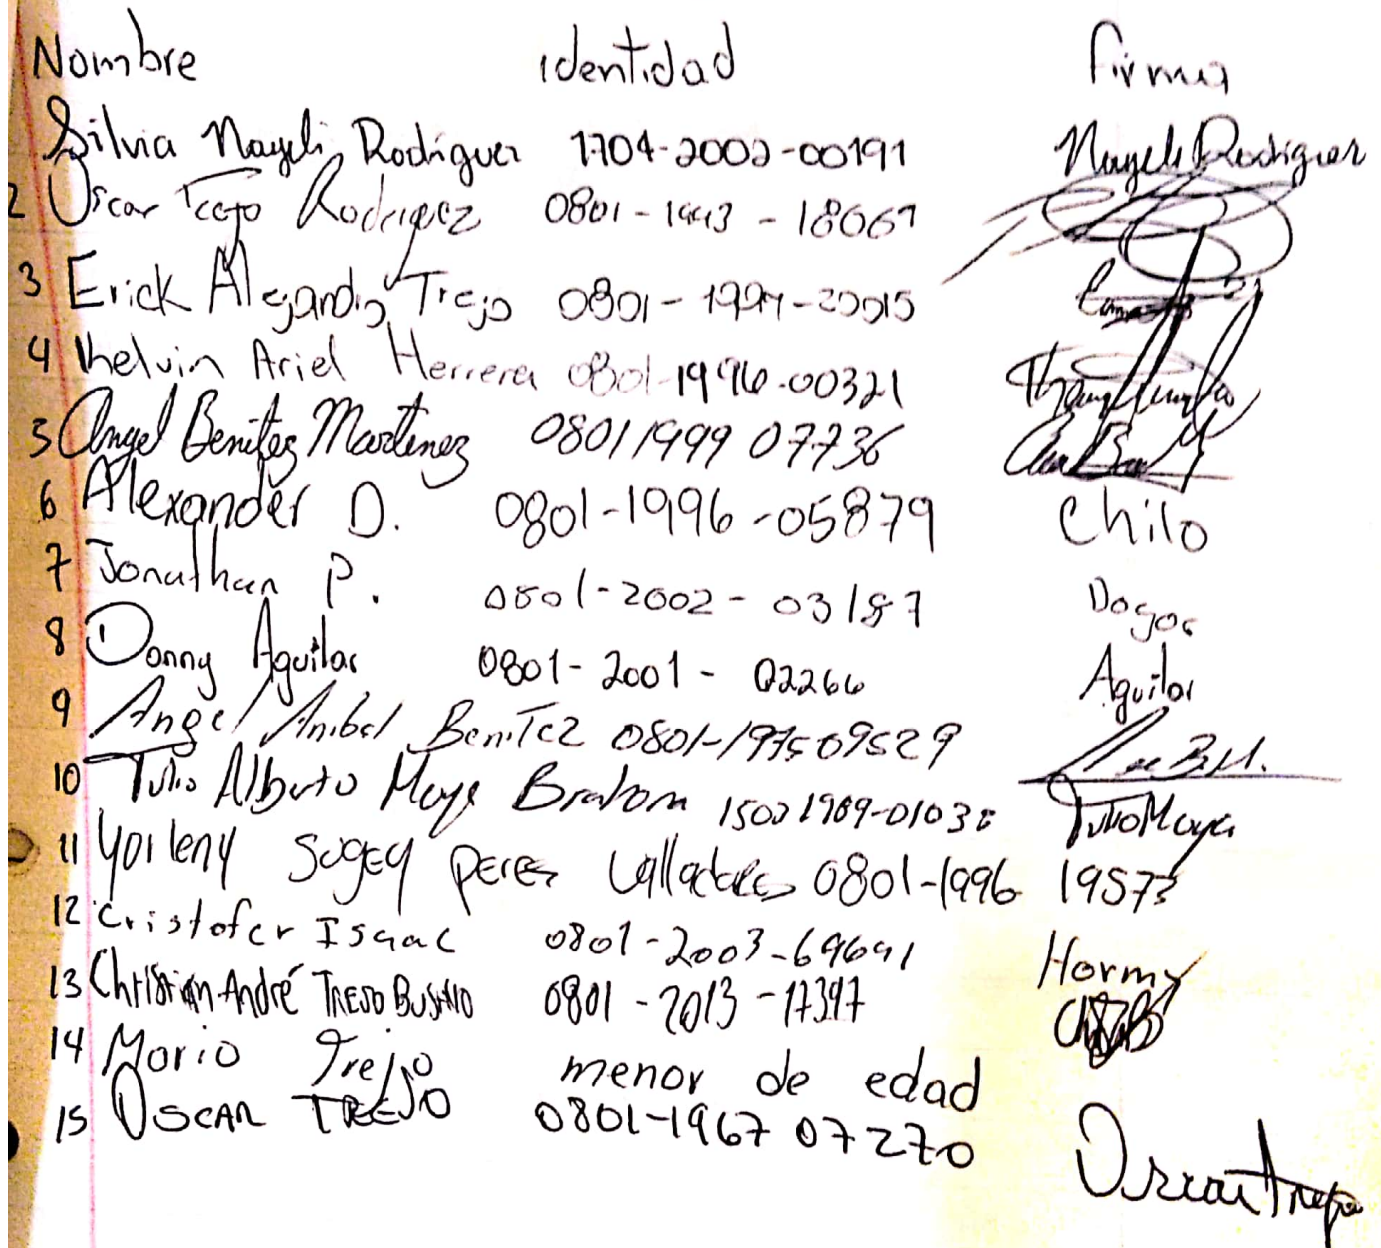 Nombre identidad firma
Silvia Nayeli Rodriguez 1704-2002-00191 Nayeli Rodriguez
2 Oscar Trejo Rodriguez 0801-1993-18067
3 Erick Alejandro Trejo 0801-
4 Khelvin Ariel Herrera 0801-1996-00321
5 Angel Benitez Martinez 0801 1999 07736
6 Alexander D. 0801-1996-05879 Chilo
7 Jonathan P. 0801-2002-03187
8 Donny Aguilar 0801-2001-02266 Aguilar
9 Angel Anibal Benitez 0801-197509529
10 Tulio Alberto 01038 Tulio
11 Yorleny Sugey Perez Valladares 0801-1996 19573
12 Cristofer Isaac 0801-2003- Hormy
13 Christian André TREJO BUSTILLO 0801-2013-17397
14 Mario Trejo menor de edad
15 OSCAR TREJO 0801-1967 07270 Oscar Trejo